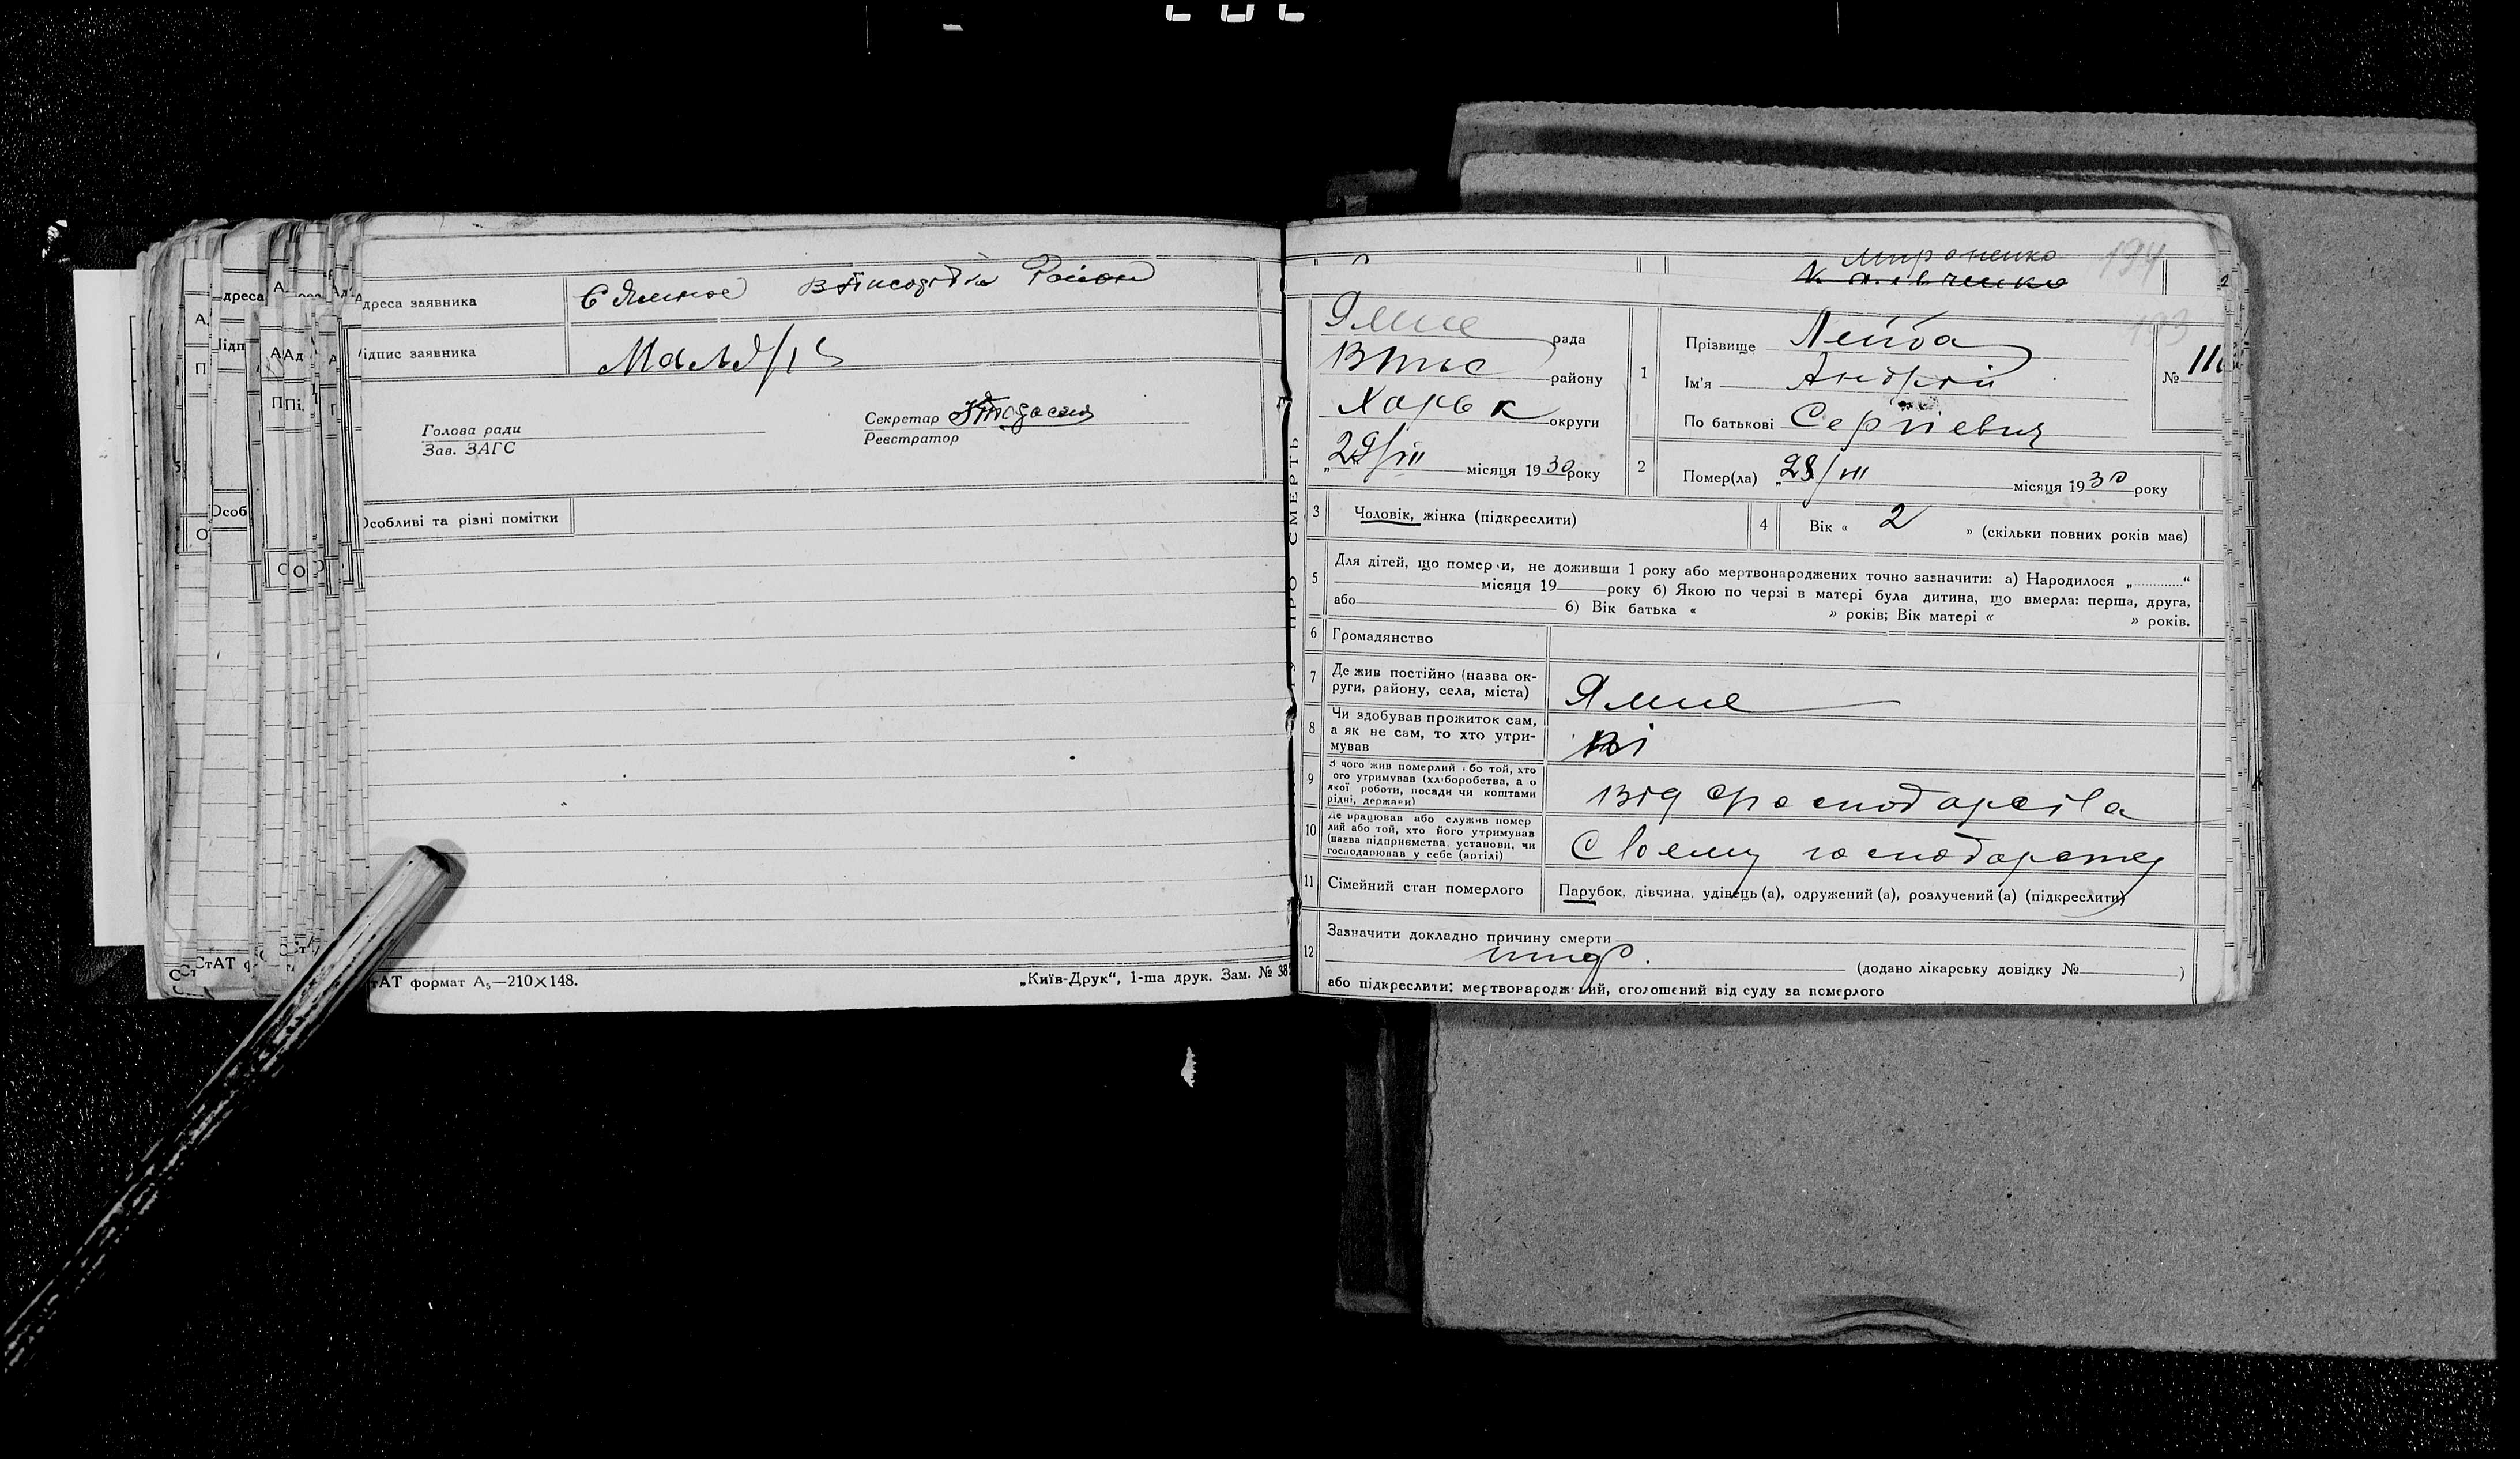 Адреса заявника
С Ямное Район
Підпис заявника
Голова ради
Зав. ЗАГС
Секретар
Реєстратор
Особливі та різні помітки
СтАТ формат А₅—210×148.
„Київ-Друк“, 1-ша друк. Зам. № 38
Мироненко 194
193
Ямне рада
Втис району
Харьк округи
„29/VIII місяця 1930року
ПРО СМЕРТЬ
1
Прізвище Лейба
Ім'я Андрій
По батькові Сергіевич
№ 11
2
Помер(ла) „28/VIII місяця 1930 року
3 Чоловік, жінка (підкреслити)
4 Вік « 2 » (скільки повних років має)
5 Для дітей, що померли, не доживши 1 року або мертвонароджених точно зазначити: а) Народилося „............“
місяця 19 року б) Якою по черзі в матері була дитина, що вмерла: перша, друга,
або б) Вік батька « » років; Вік матері « » років.
6 Громадянство
7 Де жив постійно (назва ок-
руги, району, села, міста)
Ямне
8 Чи здобував прожиток сам,
а як не сам, то хто утри-
мував
Ні
9 З чого жив померлий або той, хто
його утримував (хліборобства, а о
якої роботи, посади чи коштами
рідні, держави)
від господарства
10 Де працював або служив помер
лий або той, хто його утримував
(назва підприємства, установи, чи
господарював у себе (артілі)
Своему господарству
11 Сімейний стан померлого
Парубок, дівчина, удівець (а), одружений (а), розлучений (а) (підкреслити)
12 Зазначити докладно причину смерти
(додано лікарську довідку № )
або підкреслити: мертвонароджений, оголошений від суду за померлого